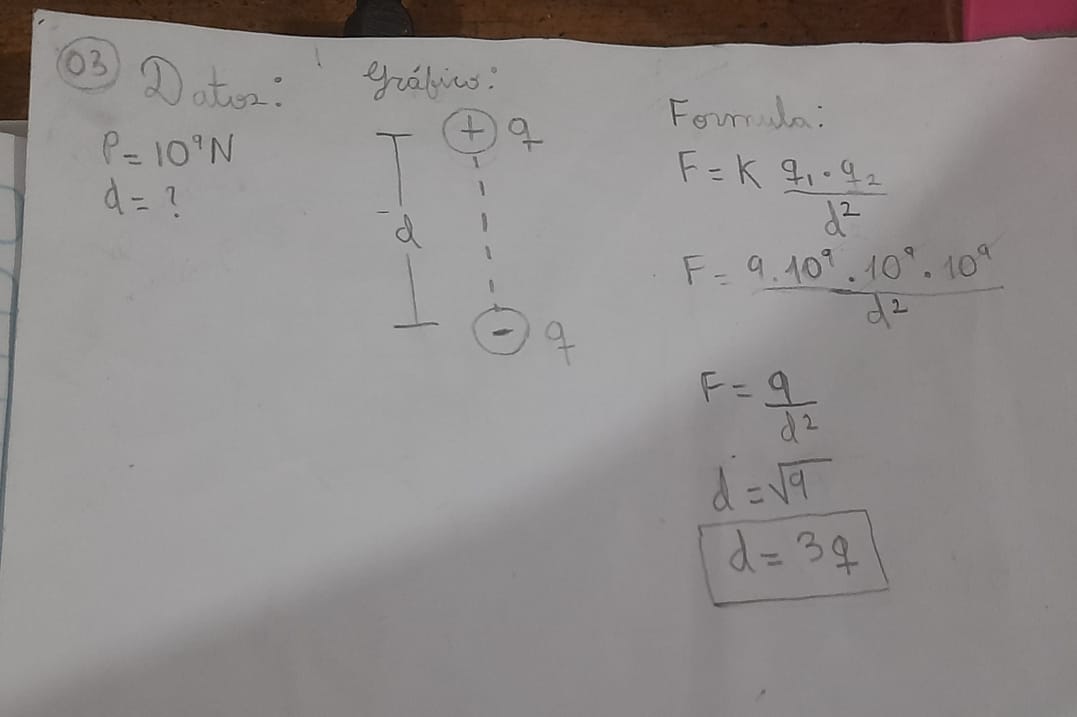 03 Datos:
P = 10⁹N
d = ?
Gráfico:
+ q
d
- q
Formula:
F = K q₁ . q₂ / d²
F = 9.10⁹ . 10⁹ . 10⁹ / d²
F = 9 / d²
d = √9
d = 3q